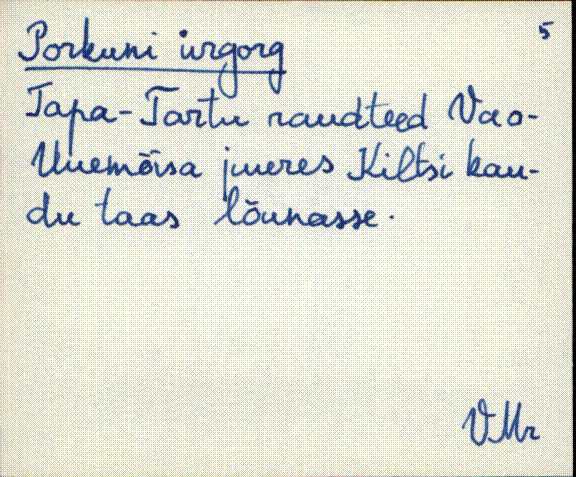 Porkuni ürgorg
5
Tapa-Tartu raudteed Vao-
Uuemõisa juures Kiltsi kau-
du taas lõunasse.
VMr